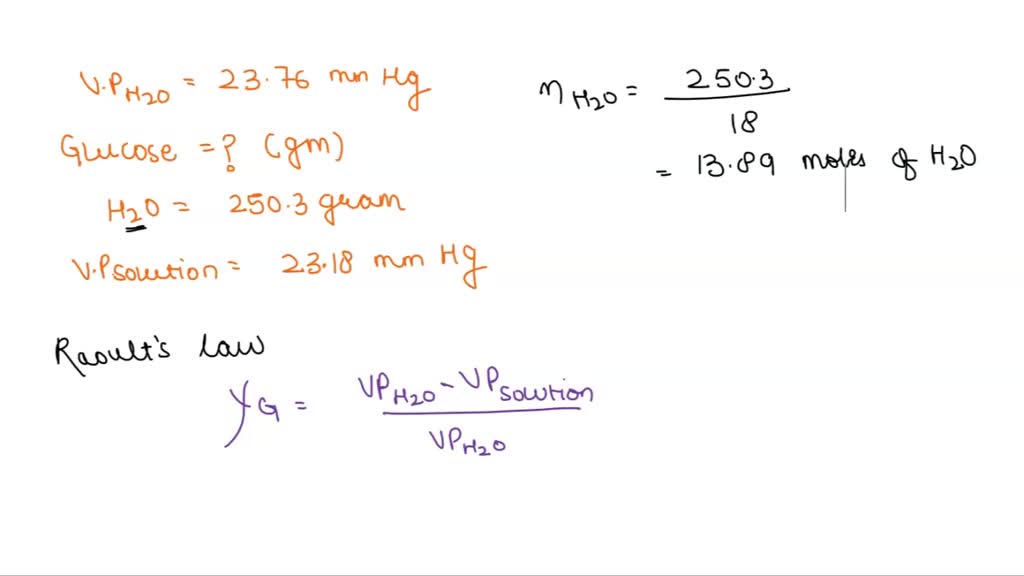 V.P H2O = 23.76 mm Hg
Glucose = ? (gm)
H2O = 250.3 gram
V.P solution = 23.18 mm Hg
n H2O = 250.3
18
= 13.89 moles of H2O
Raoult's law
χG = VP H2O - VP solution
VP H2O